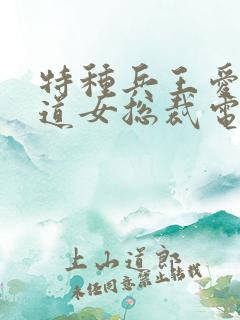 特種兵王愛
道女総裁電
上山道郎
未经同意禁止转载